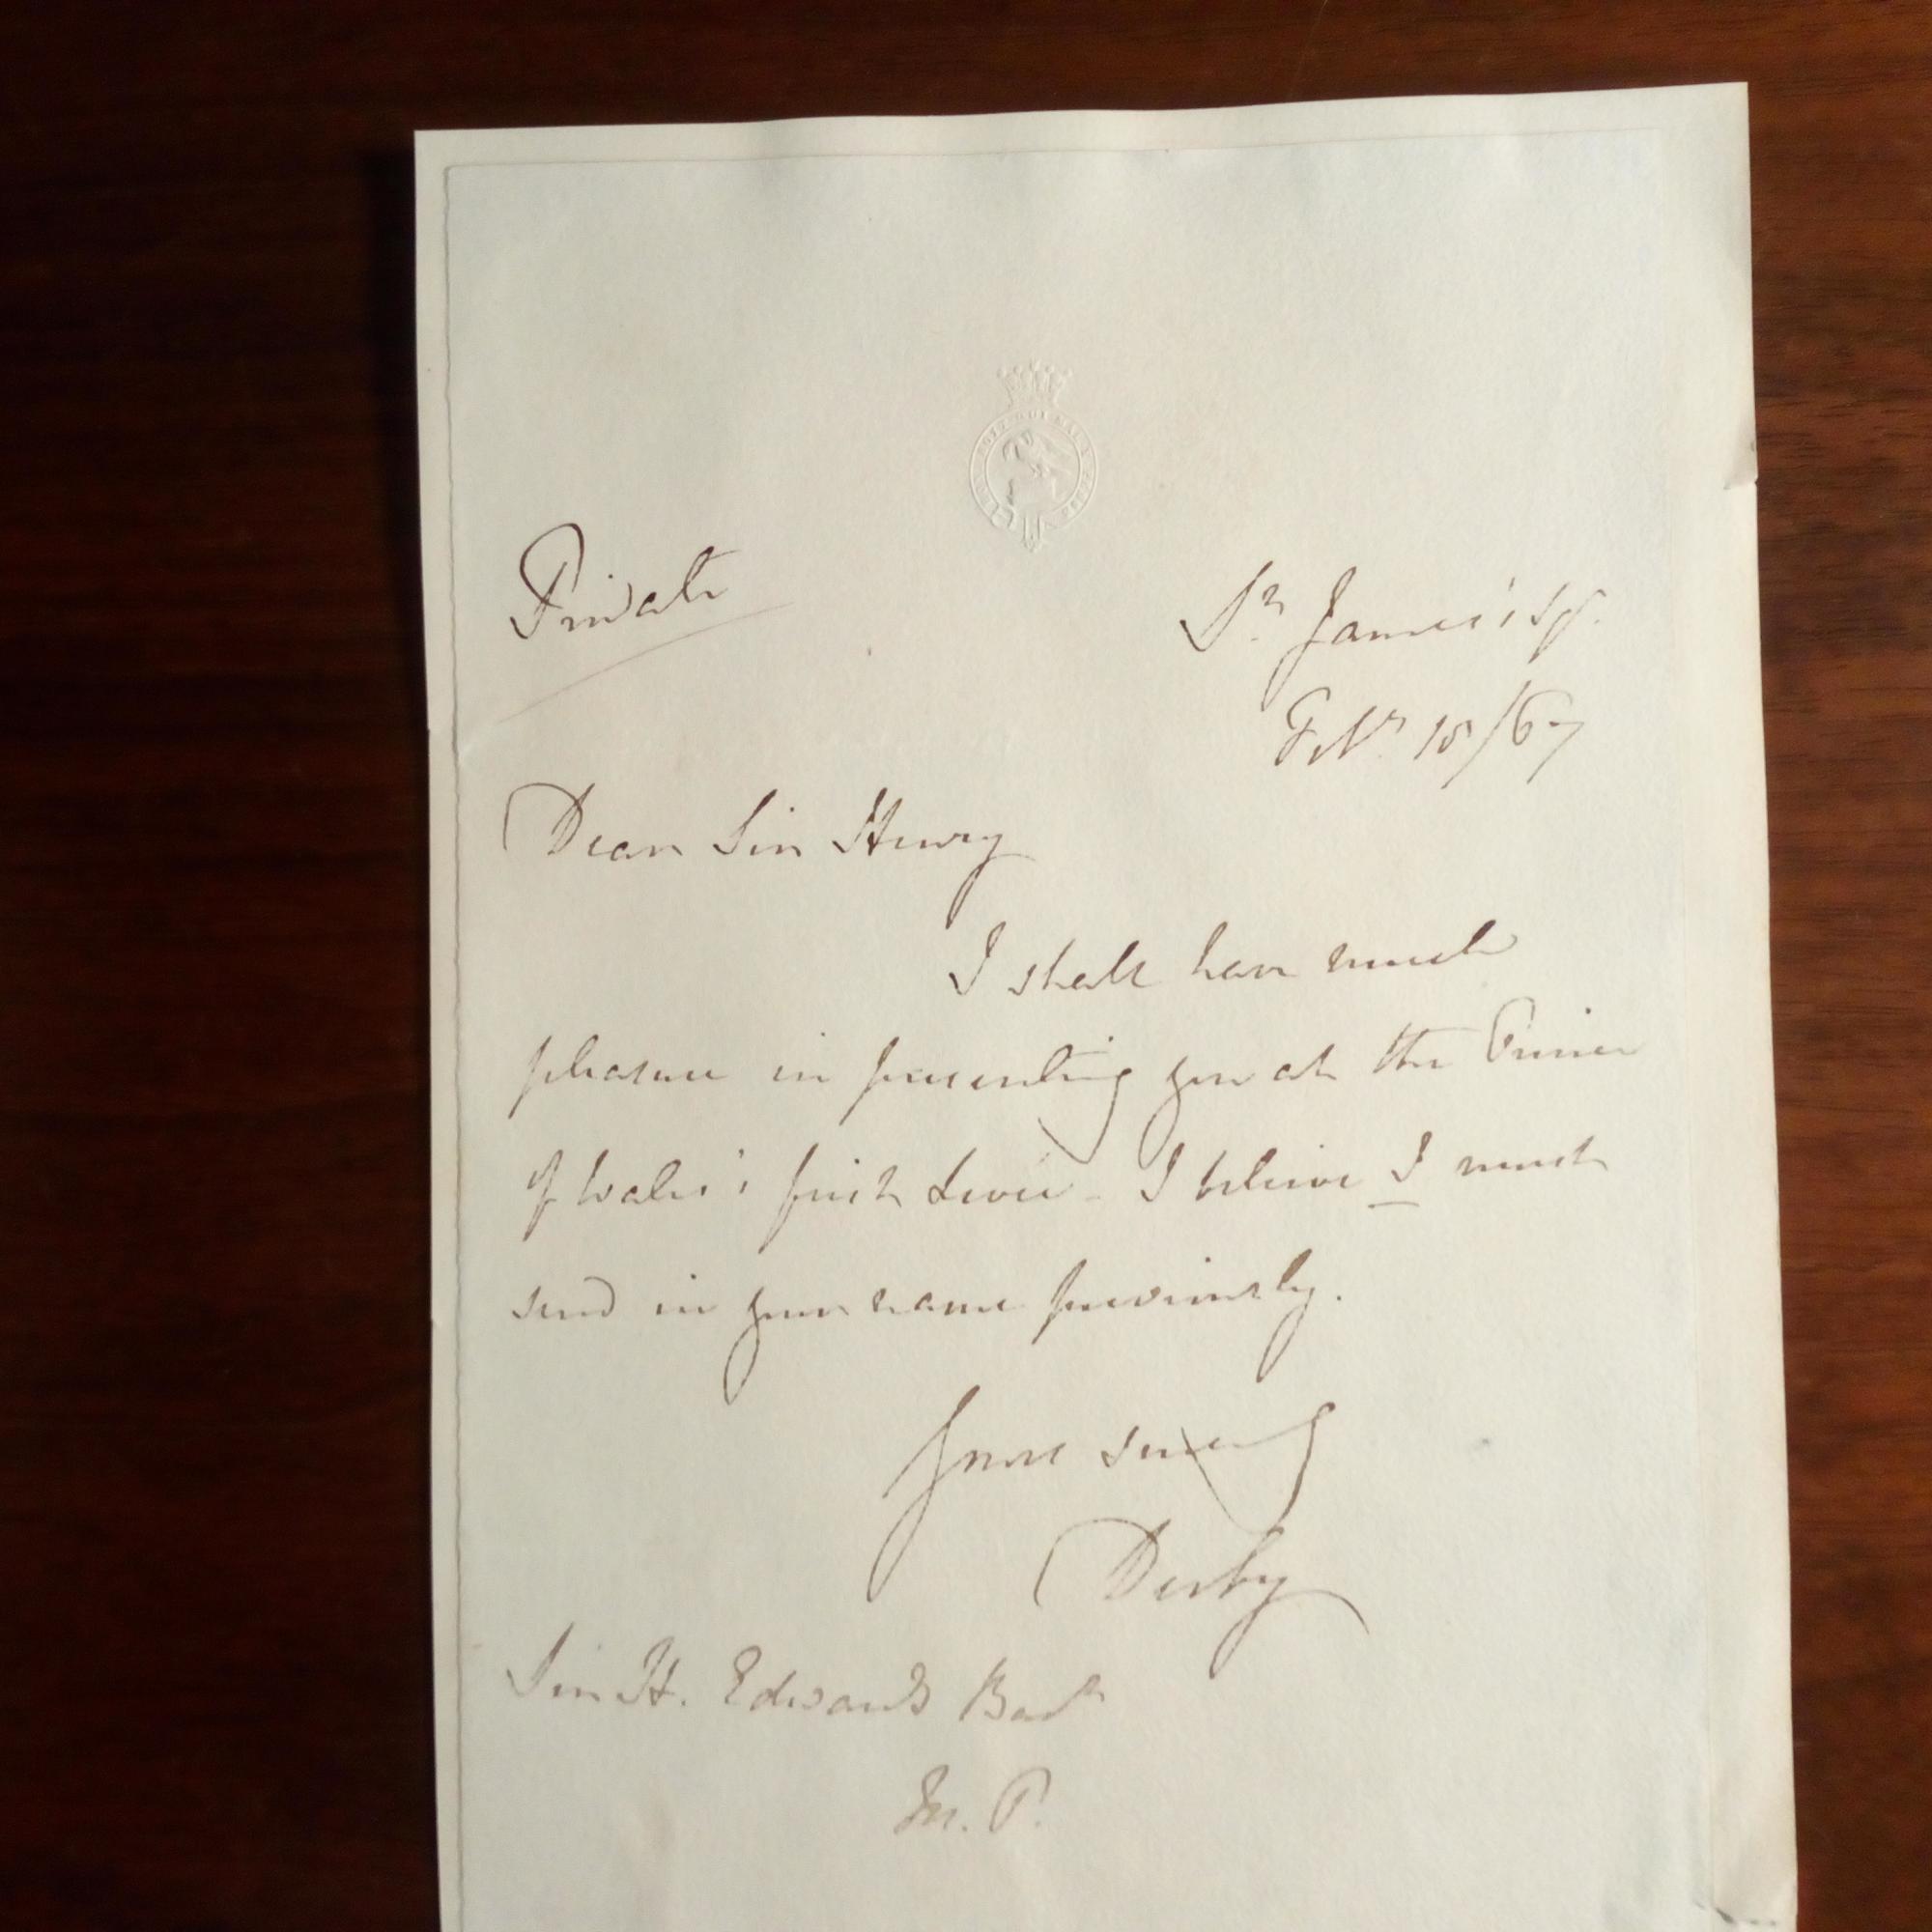 Private
St. James's Sq.
Feby. 15/67
Dear Sir Henry
I shall have much
pleasure in presenting you at the Prince
of Wales's first Levée. I believe I must
send in your name previously.
Yours sincerely
Derby
Sir H. Edwards Bart
M.P.